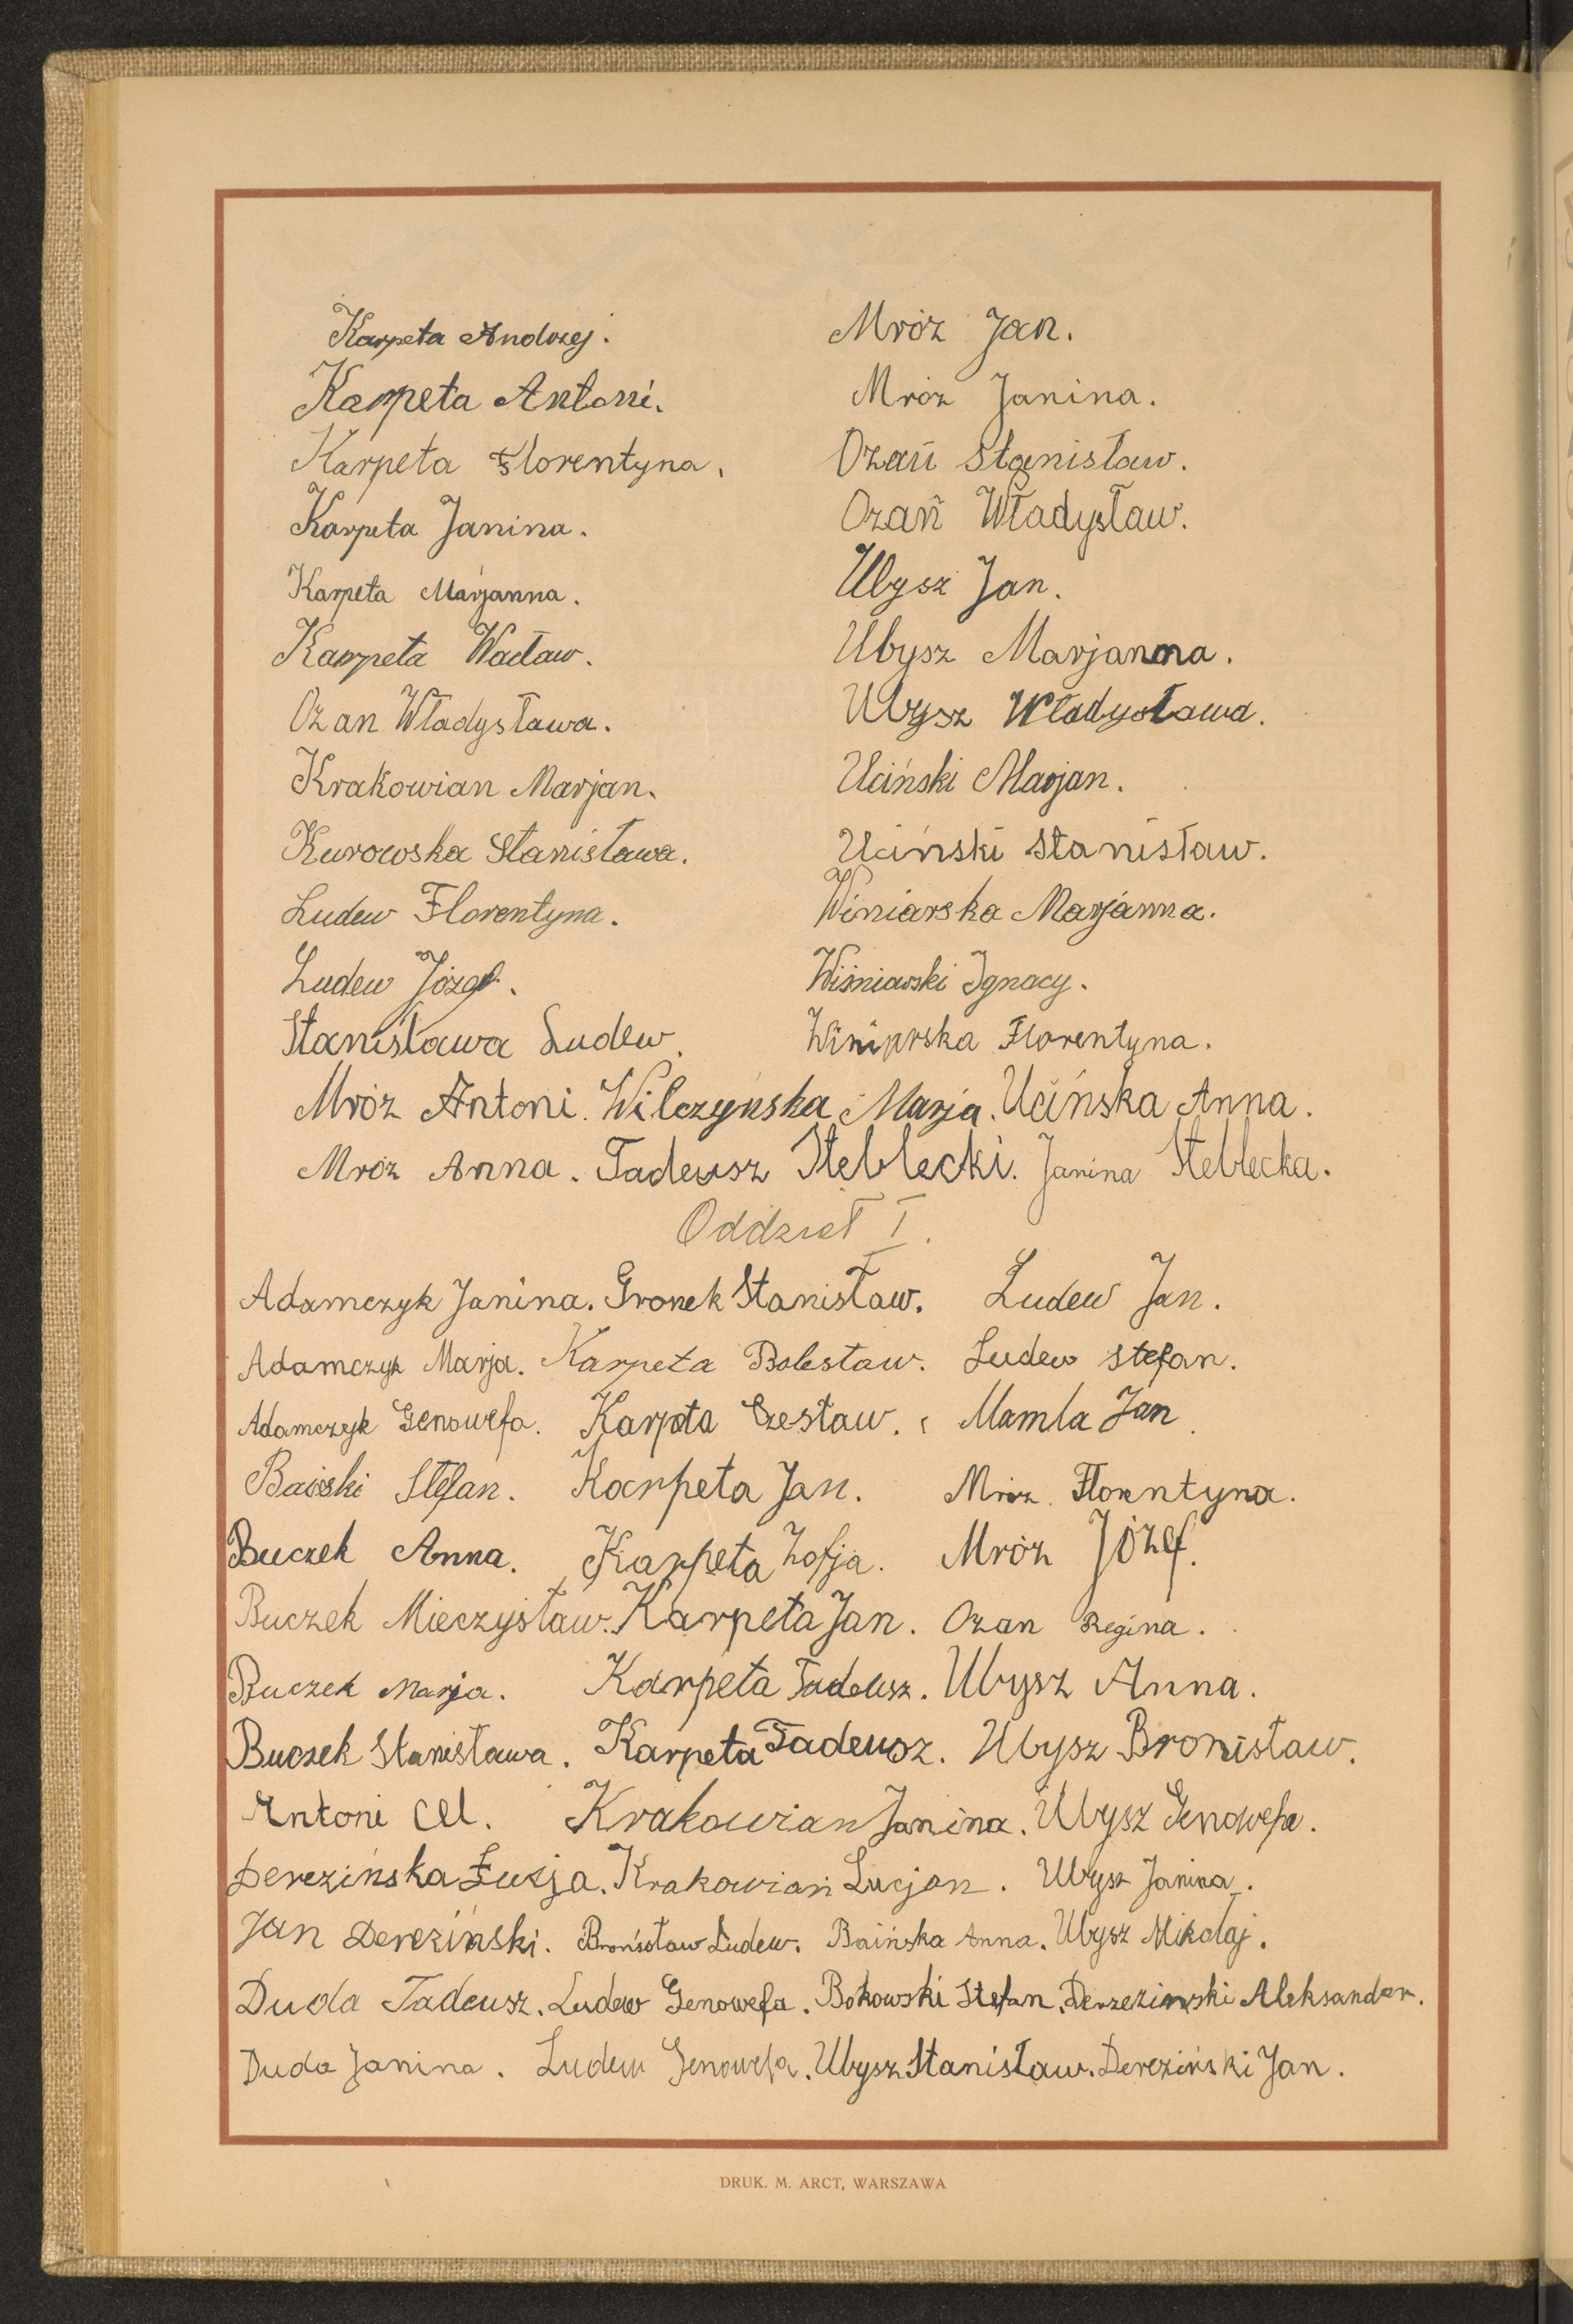 Karpeta Andrzej. Mróz Jan.
Karpeta Antoni. Mróz Janina.
Karpeta Florentyna. Ozań Stanisław.
Karpeta Janina. Ozań Władysław.
Karpeta Marjanna. Ubysz Jan.
Karpeta Wacław. Ubysz Marjanna.
Ozan Władysława. Ubysz Władysława.
Krakowian Marjan. Uciński Marjan.
Kurowska Stanisława. Uciński Stanisław.
Ludew Florentyna. Winiarska Marjanna.
Ludew Józef. Wiśniawski Ignacy.
Stanisława Ludew. Winiarska Florentyna.
Mróz Antoni. Wilczyńska Marja. Ucińska Anna.
Mróz Anna. Tadeusz Steblecki. Janina Steblecka.
Oddział I.
Adamczyk Janina. Gronek Stanisław. Ludew Jan.
Adamczyk Marja. Karpeta Bolesław. Ludew Stefan.
Adamczyk Genowefa. Karpeta Czesław. Mamla Jan.
Stefan. Karpeta Jan. Mróz Florentyna.
Buczek Anna. Karpeta Zofja. Mróz Józef.
Buczek Mieczysław. Karpeta Jan. Ozan Regina.
Buczek Marja. Karpeta Tadeusz. Ubysz Anna.
Buczek Stanisława. Karpeta Tadeusz. Ubysz Bronisław.
Antoni Cel. Krakowian Janina. Ubysz Genowefa.
Derezińska Łucja. Krakowian Lucjan. Ubysz Janina.
Jan Dereziński. Bronisław Ludew. Baińska Anna. Ubysz Mikołaj.
Duda Tadeusz. Ludew Genowefa. Bokowski Stefan. Derzezinski Aleksander.
Duda Janina. Ludew Genowefa. Ubysz Stanisław. Dereziński Jan.
DRUK. M. ARCT, WARSZAWA